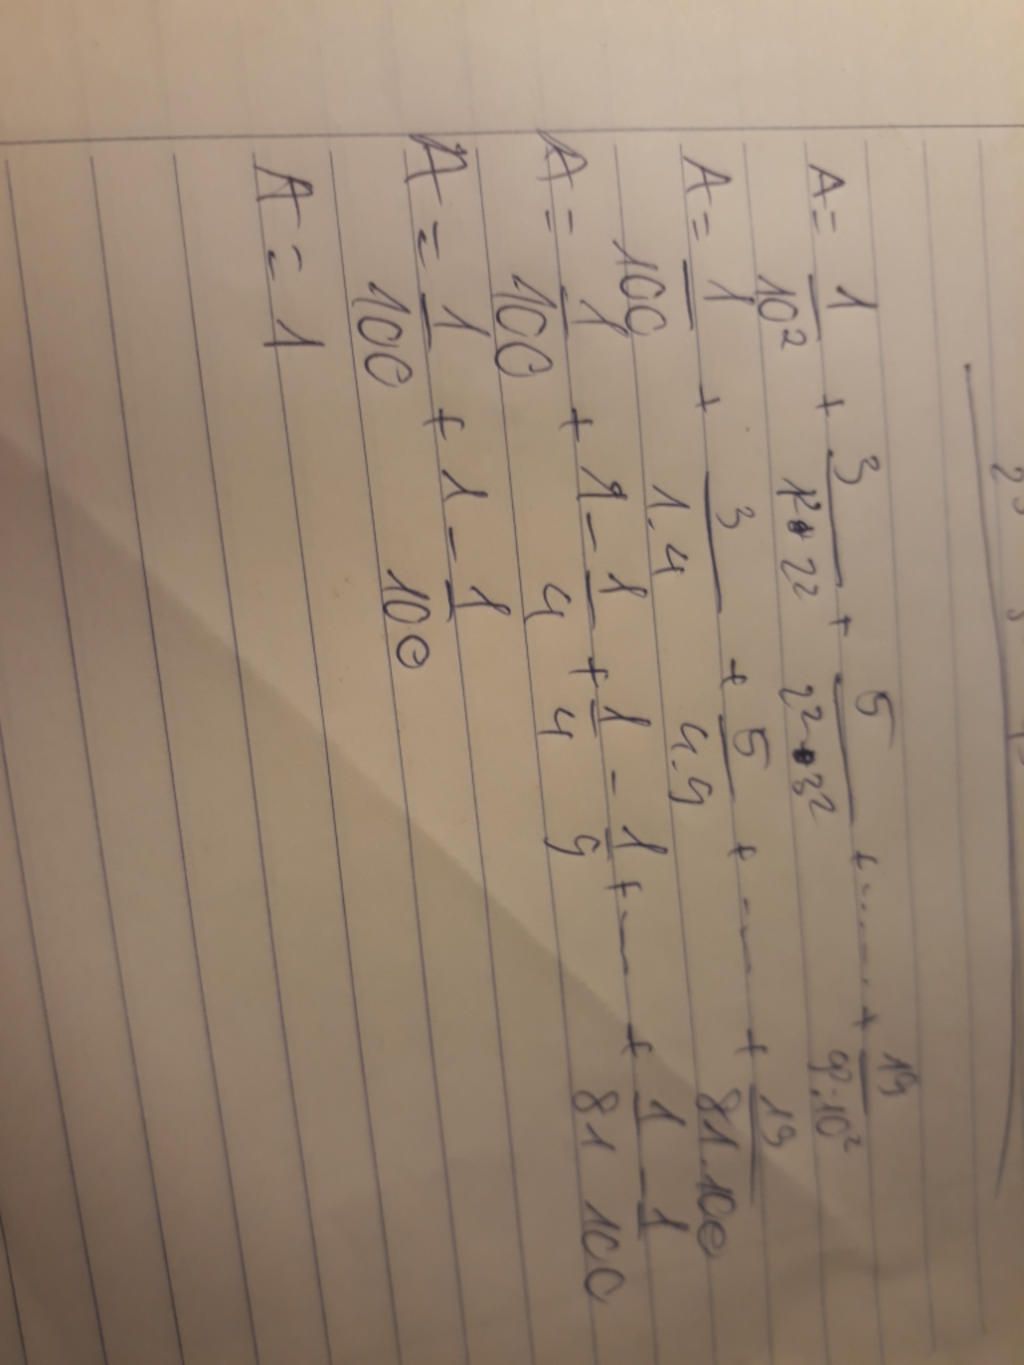 A = 1/10² + 3/1²•2² + 5/2²•3² + ...... + 19/9².10²
A = 1/100 + 3/1.4 + 5/4.9 + ... + 19/81.100
A = 1/100 + 1 - 1/4 + 1/4 - 1/9 + ... + 1/81 - 1/100
A = 1/100 + 1 - 1/100
A = 1